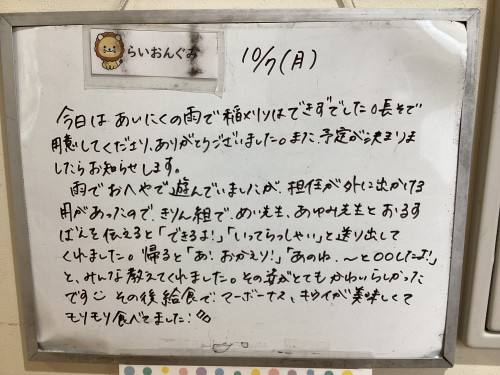 らいおんぐみ
10/7(月)
今日は あいにくの雨で稲刈りはできずでした。長そで
用意してくださり、ありがとうございました。また、予定が決まりま
したらお知らせします。
雨でおへやで遊んでいましたが、担任が外に出かける
用があったので、きりん組で、めい先生、あゆみ先生とおるす
ばんを伝えると「できるよ!」「いってらっしゃい」と送り出して
くれました。帰ると「あ!おかえり!」「あのね、~と〇〇したよ!」
と、みんな教えてくれました。その姿がとてもかわいらしかった
です その後給食で、マーボーナス、キウイが美味しくて
モリモリ食べてました!